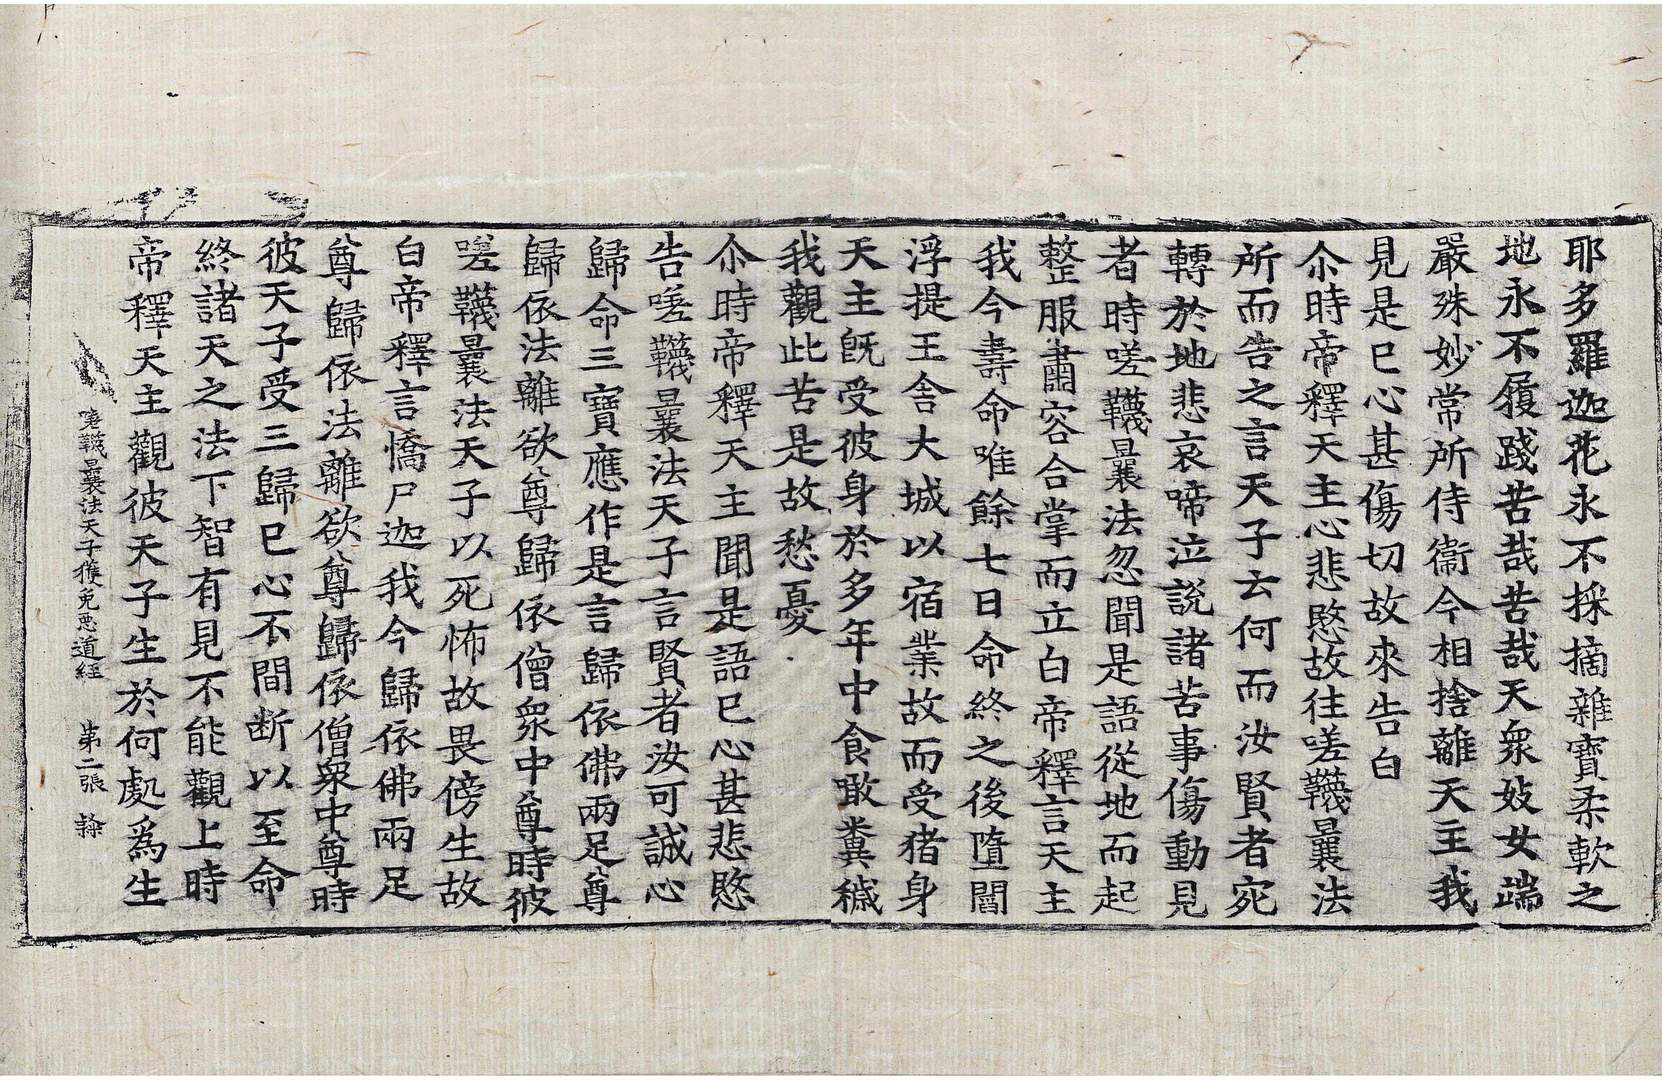 耶多羅迦花永不採摘雜寶柔軟之
地永不履踐苦哉苦哉天衆妓女端
嚴殊妙常所侍衞今相捨離天主我
見是已心甚傷切故來告白
尒時帝釋天主心悲愍故往嗟韈曩法
所而告之言天子云何而汝賢者宛
轉於地悲哀啼泣說諸苦事傷動見
者時嗟韈曩法忽聞是語從地而起
整服肅容合掌而立白帝釋言天主
我今壽命唯餘七日命終之後墮閻
浮提王舍大城以宿業故而受猪身
天主旣受彼身於多年中食噉糞穢
我觀此苦是故愁憂
尒時帝釋天主聞是語已心甚悲愍
告嗟韈曩法天子言賢者汝可誠心
歸命三寶應作是言歸依佛兩足尊
歸依法離欲尊歸依僧衆中尊時彼
嗟韈曩法天子以死怖故畏傍生故
白帝釋言憍尸迦我今歸依佛兩足
尊歸依法離欲尊歸依僧衆中尊時
彼天子受三歸已心不間断以至命
終諸天之法下智有見不能觀上時
帝釋天主觀彼天子生於何處爲生
嗟韈曩法天子獲免惡道經 第二張